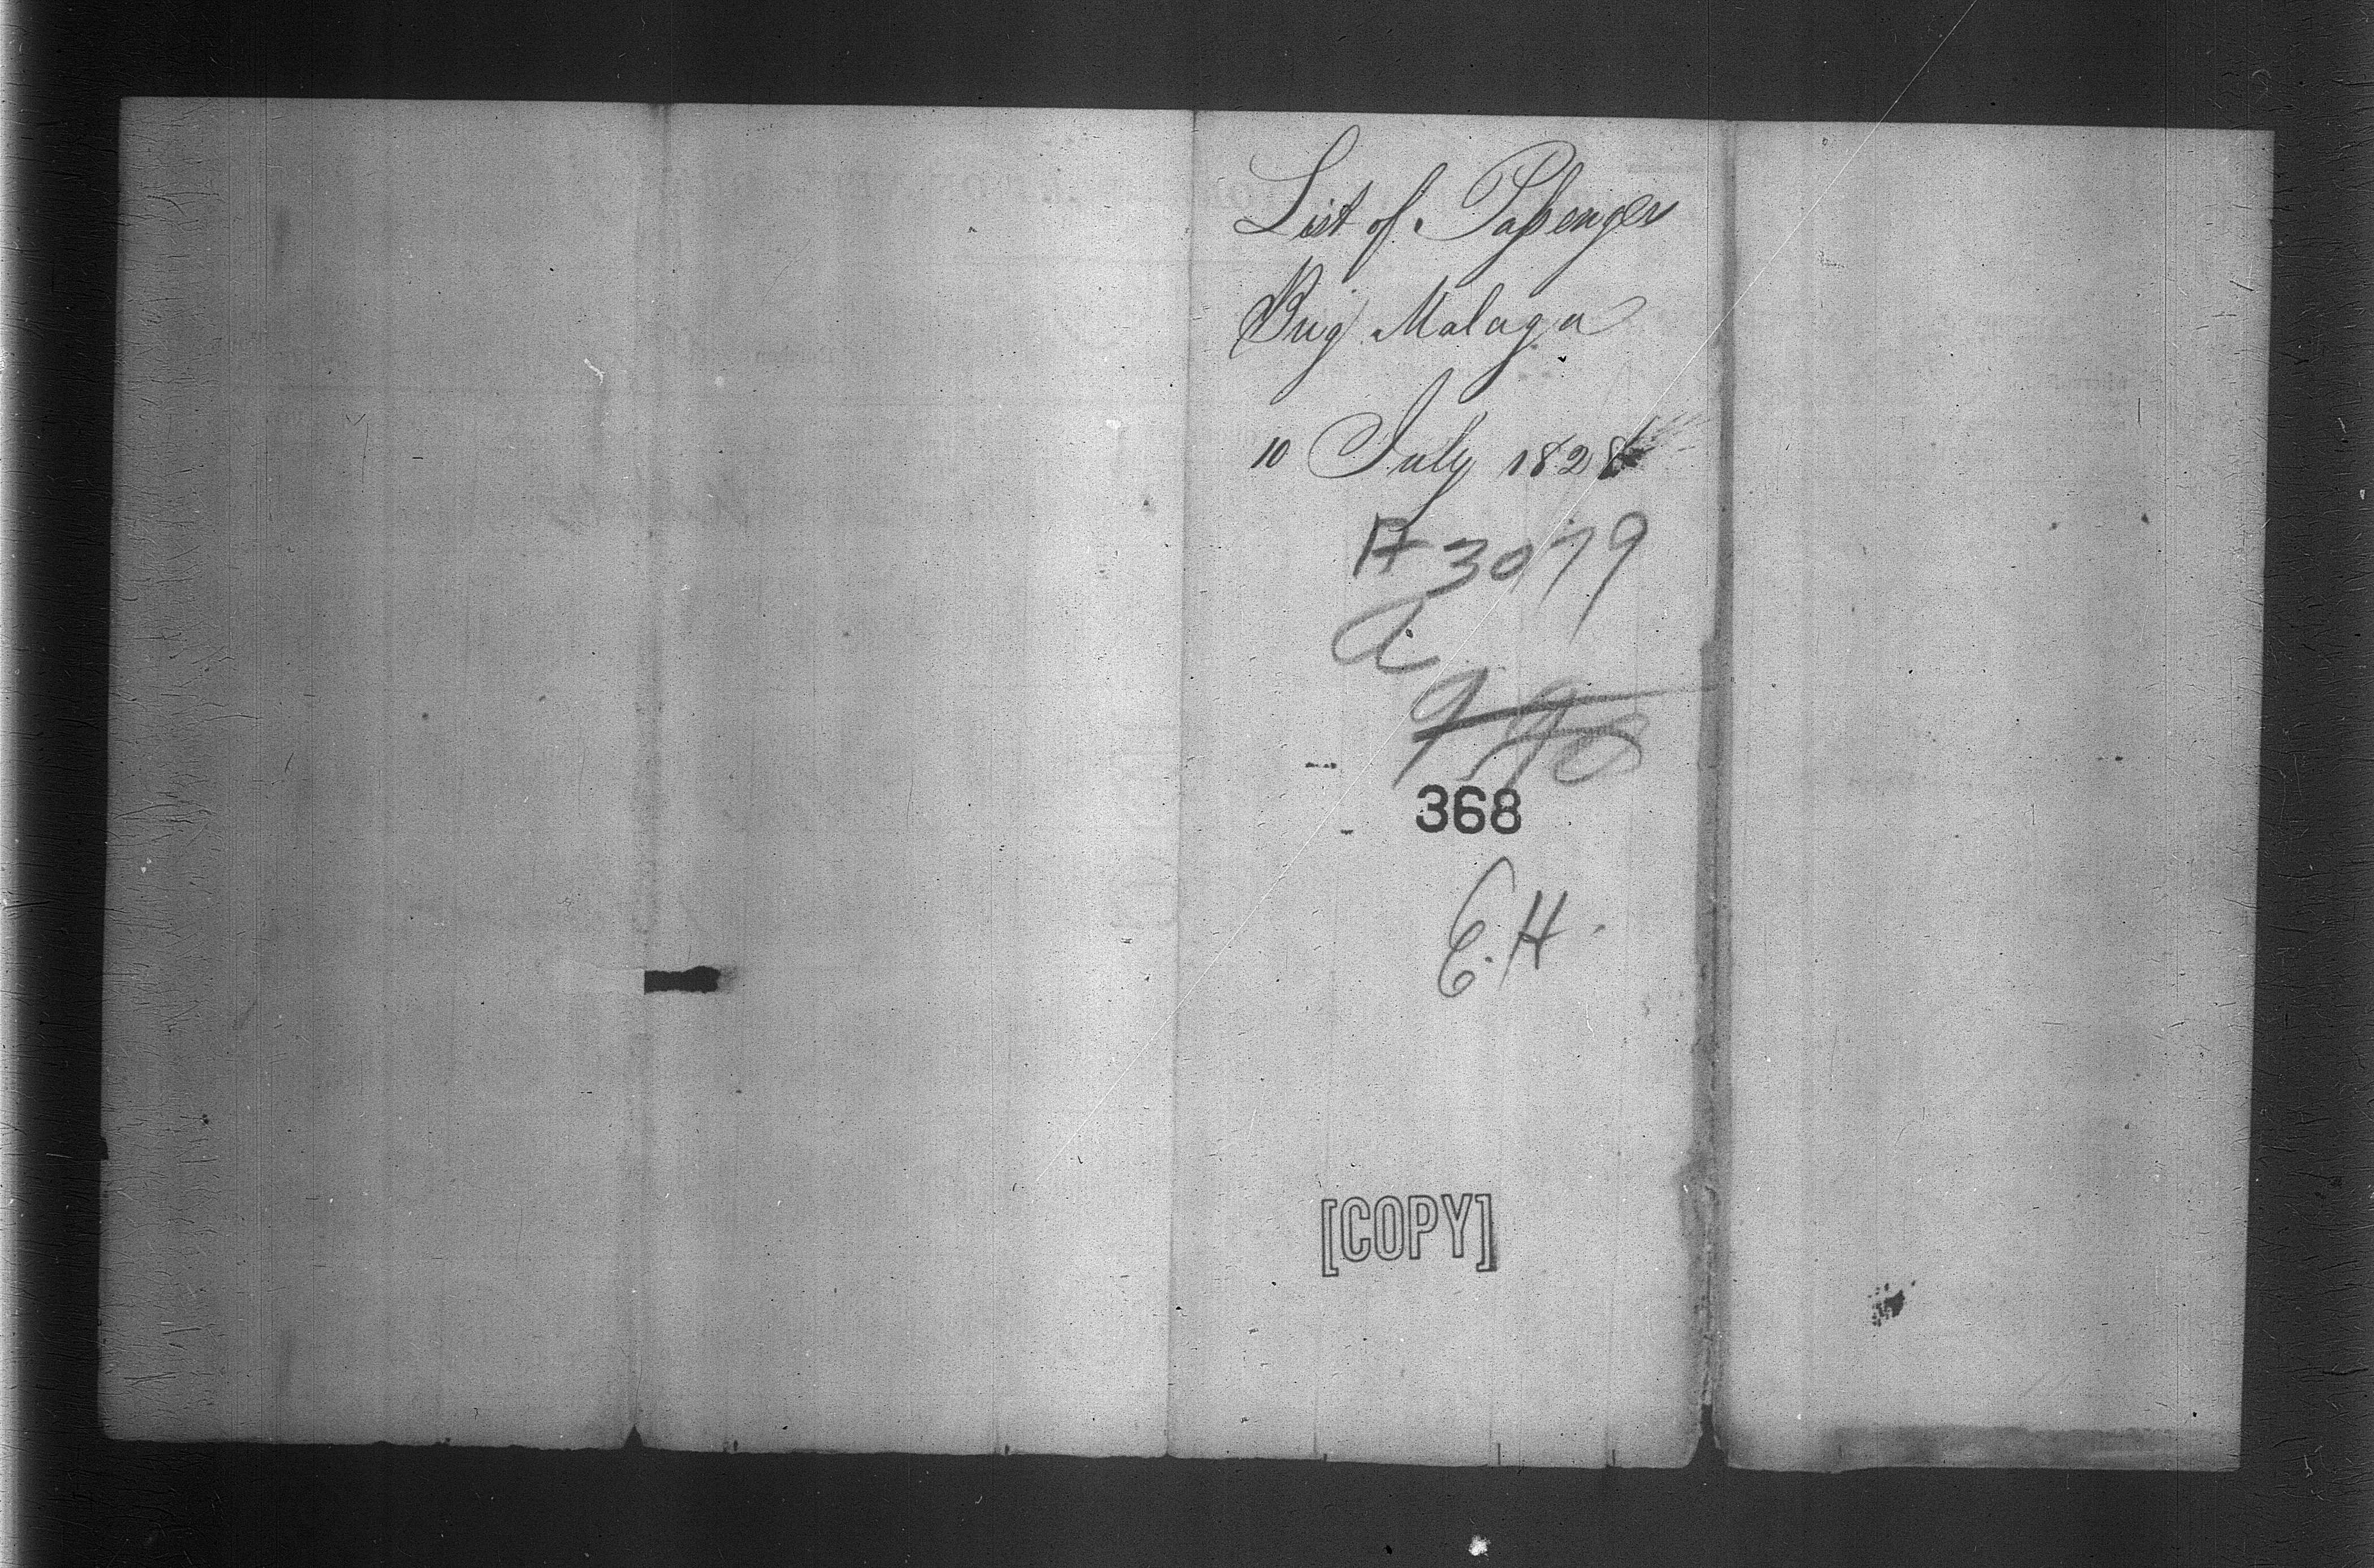 List of Passengers
Brig Malaga
10 July 1828
A 3079
A
990
368
E. H.
[COPY]